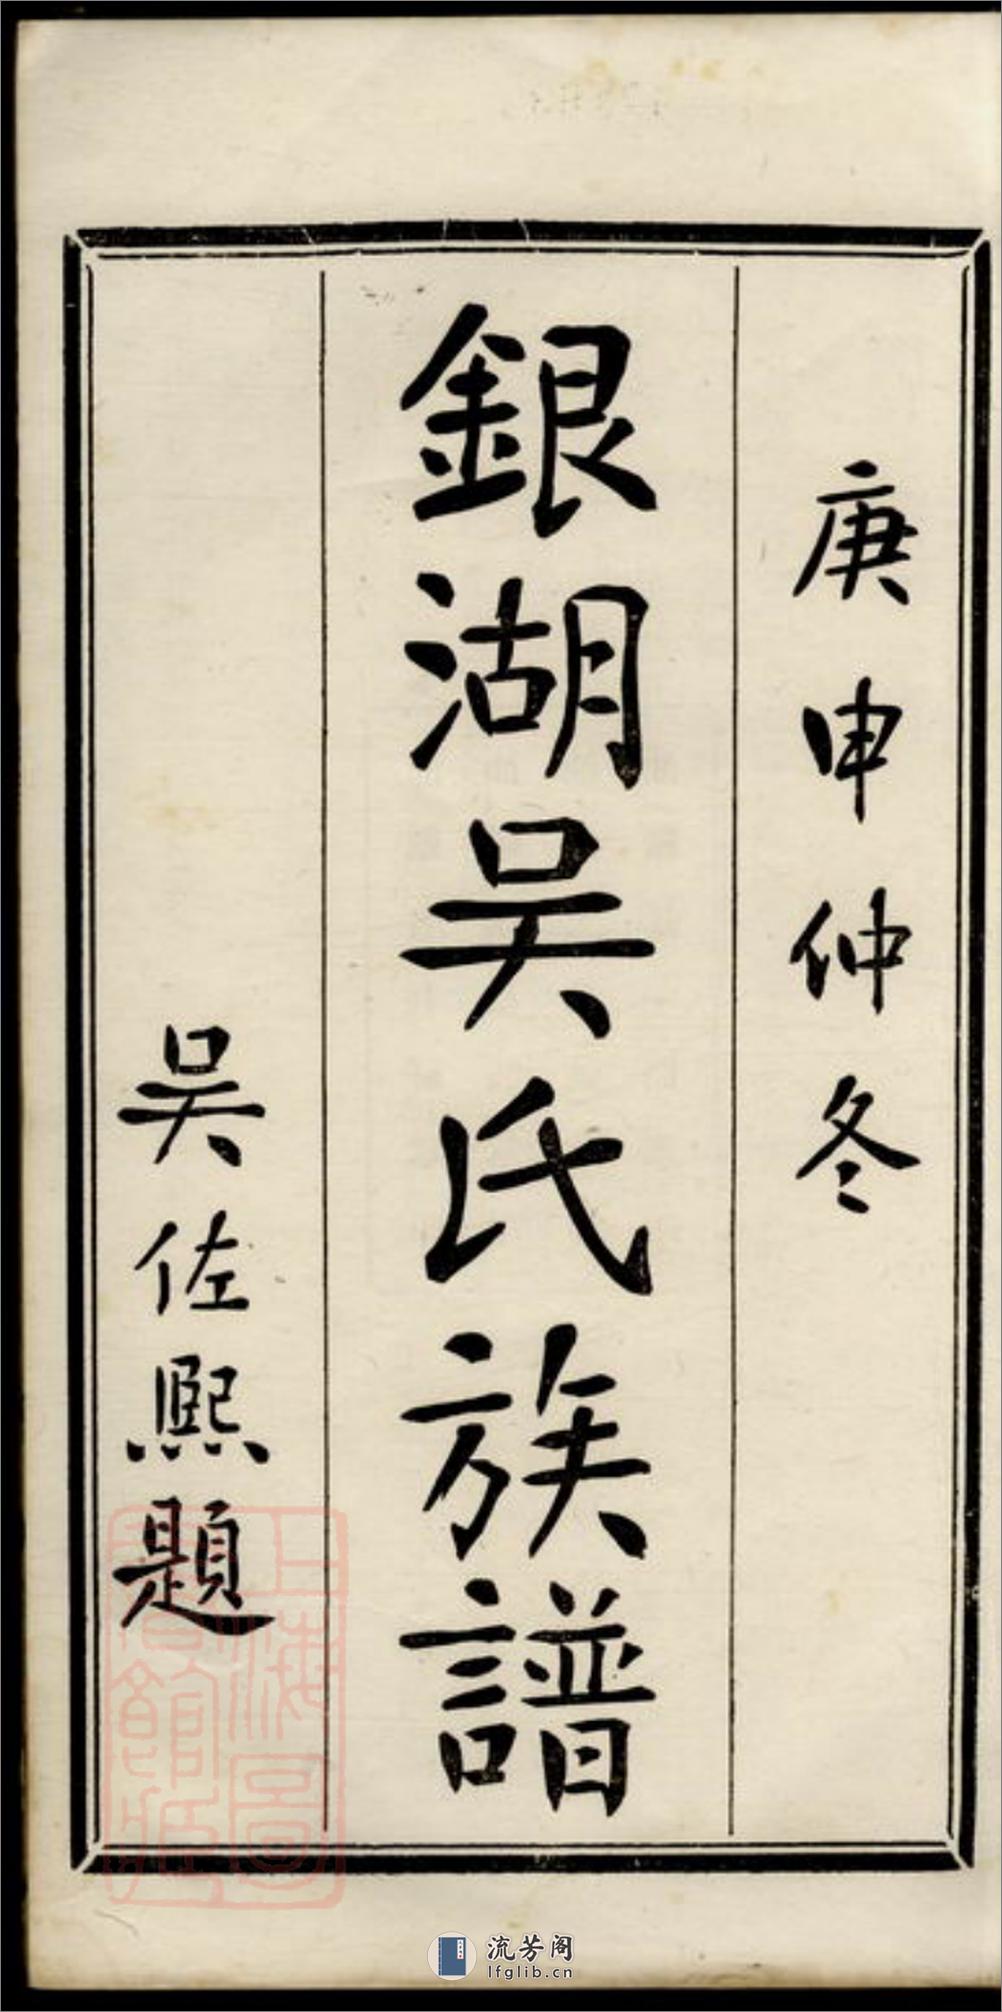 庚申仲冬
銀湖吳氏族譜
吳佐熙題
上海圖
書館藏
流芳阁
lfglib.cn